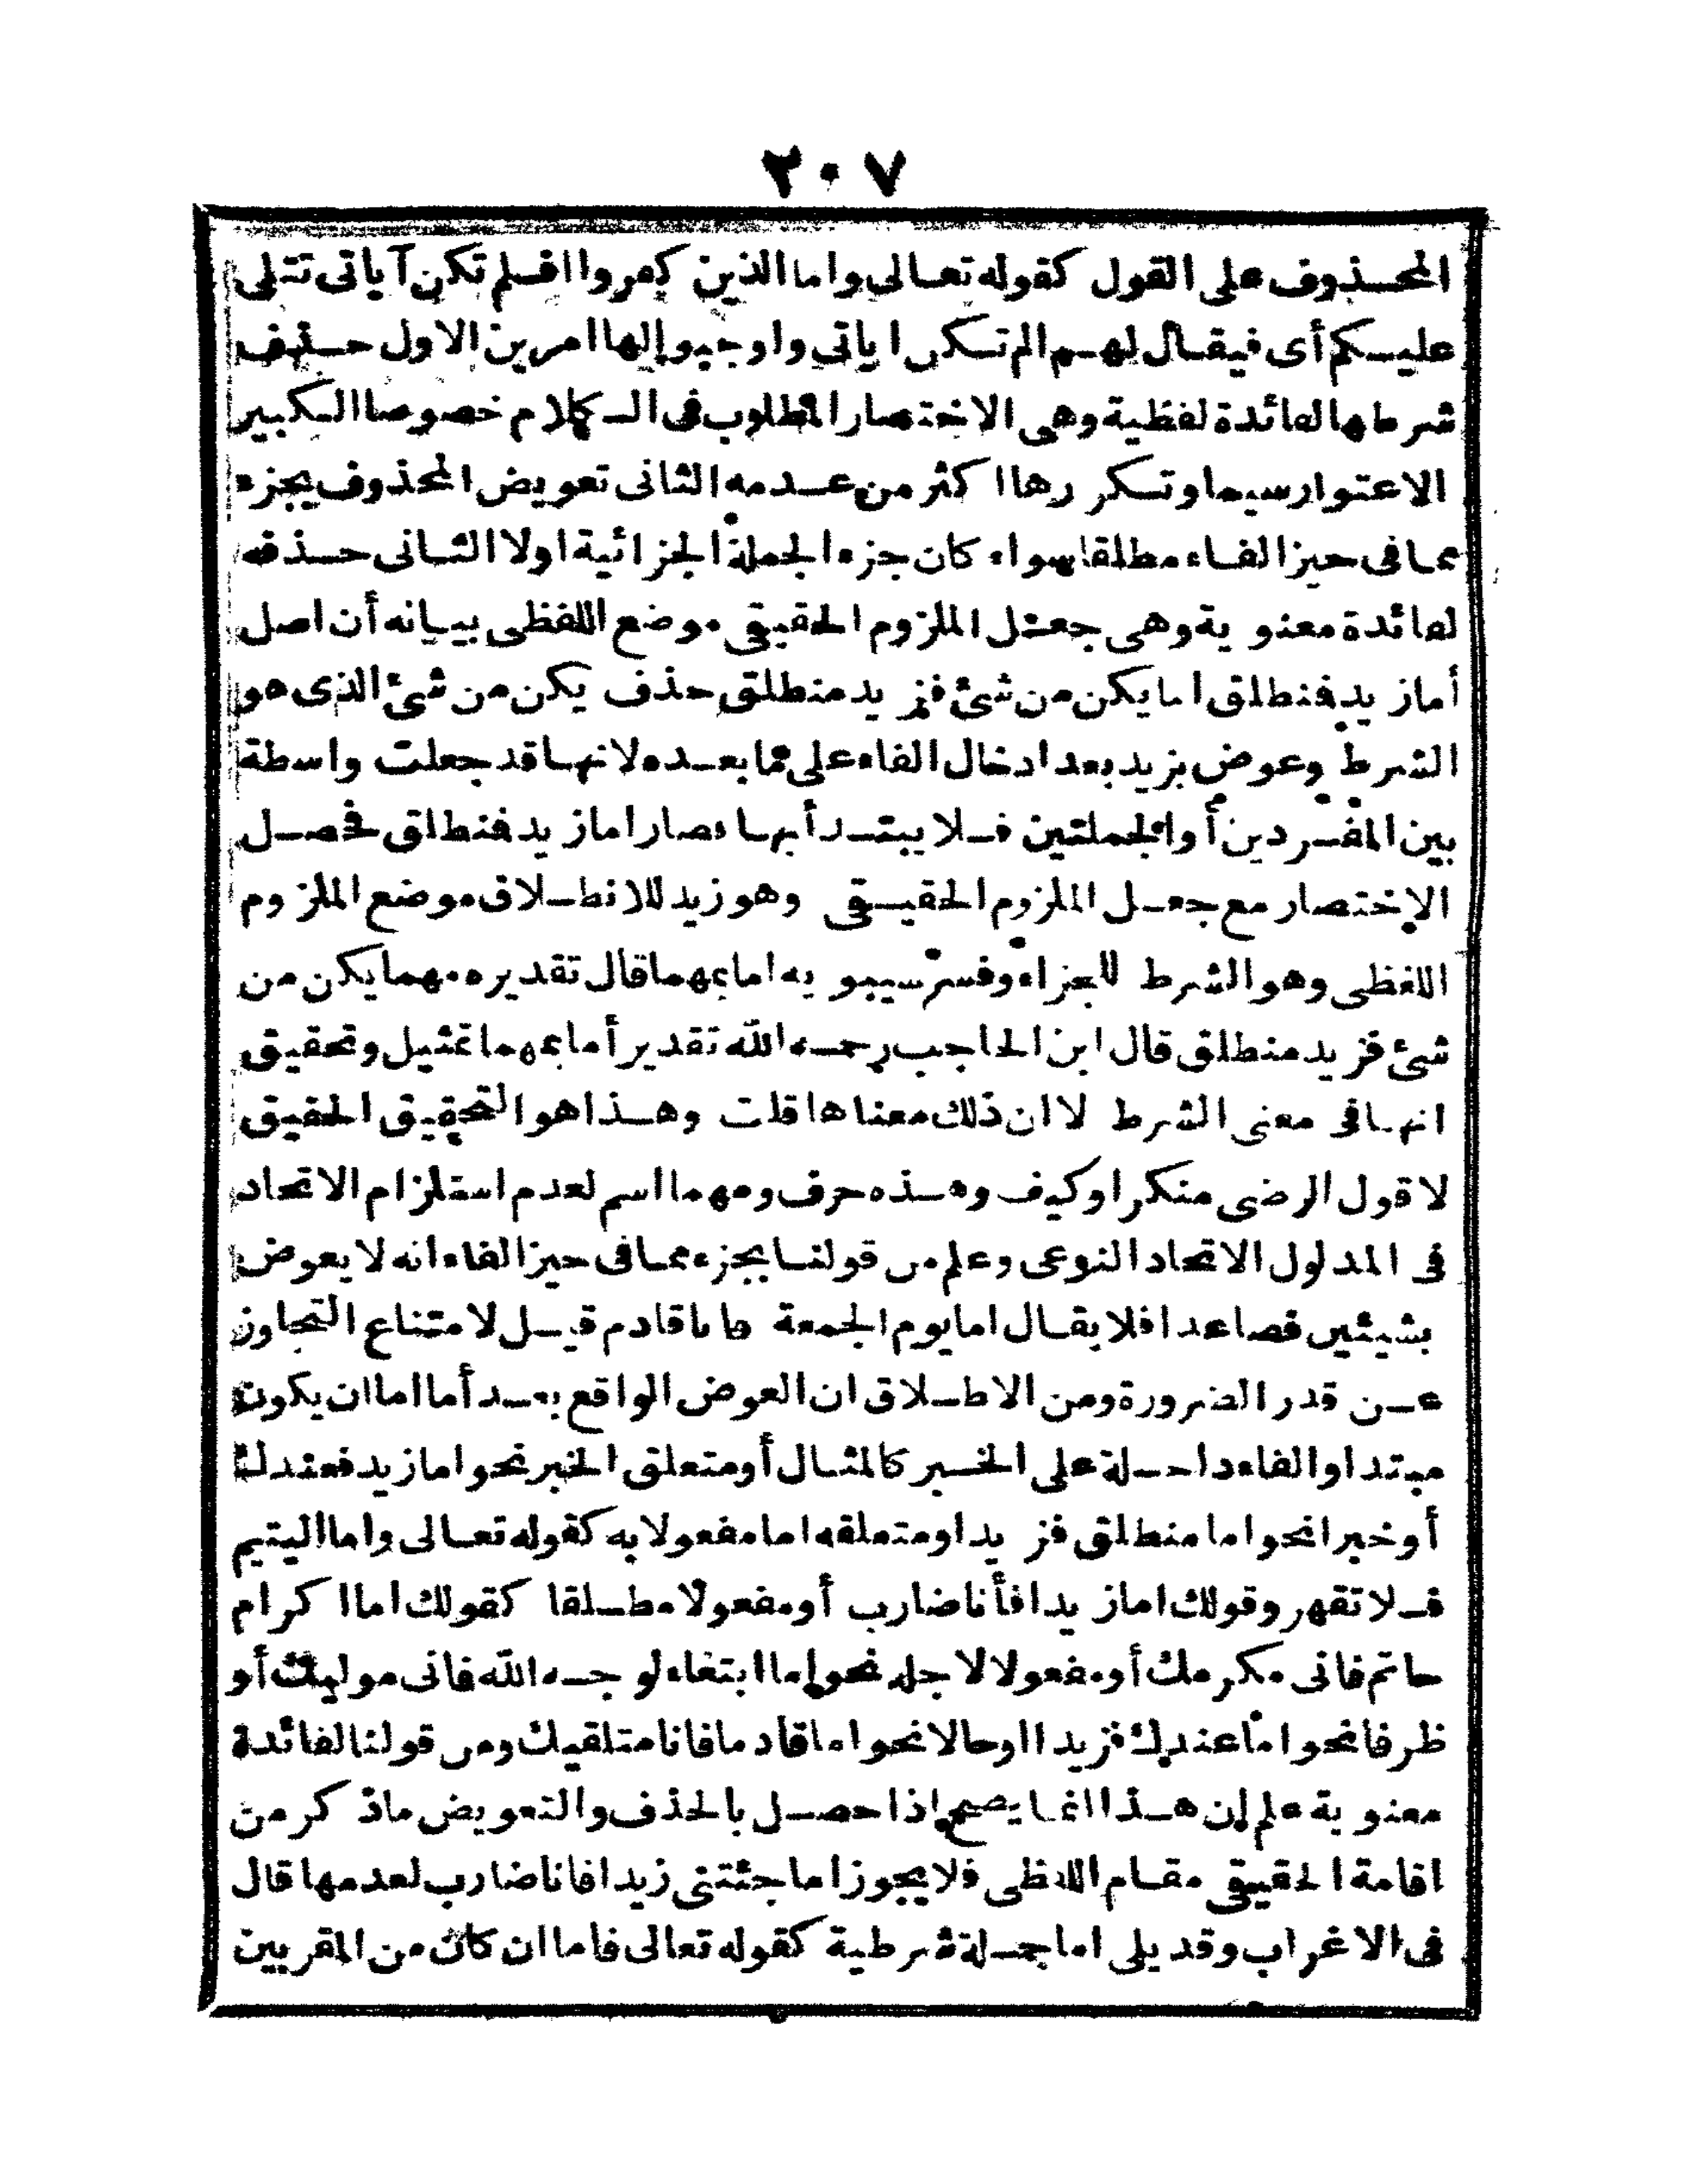 ٢٠٧
المحذوف على القول كقوله تعالى واما الذين كفروا افلم تكن آياتى تتلى
عليكم أى فيقال لهم الم تكن اياتي واوجبوا لها امرين الاول حذف
شرطها لفائدة لفظية وهى الاختصار المطلوب فى الكلام خصوصا الكبير
الاعتوار سيما وتكررها اكثر من عدمه الثانى تعويض المحذوف بجزء
مما فى حيز الفاء مطلقا سواء كان جزء الجملة الجزائية اولا الثانى حذفه
لفائدة معنوية وهى جعل الملزوم الحقيقى موضع اللفظى بيانه أن اصل
أما زيد فنطلق اما يكن من شئ فزيد منطلق حذف يكن من شئ الذى هو
الشرط وعوض بزيد بعد ادخال الفاء على مما بعده لانها قد جعلت واسطة
بين المفردين أو الجملتين فلا يبتدأ بها فصار اما زيد فنطلق فحصل
الاختصار مع جعل الملزوم الحقيقى وهو زيد للانطلاق موضع الملزوم
اللفظى وهو الشرط للجزاء وفسر سيبويه اما بمهما قال تقديره مهما يكن من
شئ فزيد منطلق قال ابن الحاجب رحمه الله تقدير أما بمهما تمثيل وتحقيق
انها فى معنى الشرط لا ان ذلك معناها قلت وهذا هو التحقيق الحقيق
لا قول الرضى منكرا وكيف وهذه حرف ومهما اسم لعدم استلزام الاتحاد
فى المدلول الاتحاد النوعى وعلم من قولنا بجزء مما فى حيز الفاء انه لا يعوض
بشيئين فصاعدا فلا يقال اما يوم الجمعة فانا قادم قيل لامتناع التجاوز
عن قدر الضرورة ومن الاطلاق ان العوض الواقع بعد أما اما ان يكون
مبتدا والفاء داخلة على الخبر كالمثال أو متعلق الخبر نحو اما زيد فعندك
أو خبرا نحو اما منطلق فزيد او متعلقه اما مفعولا به كقوله تعالى واما اليتيم
فلا تقهر وقولك اما زيدا فأنا ضارب أو مفعولا مطلقا كقولك اما اكرام
حاتم فانى مكرمك أو مفعولا لاجله نحو اما ابتغاء لوجه الله فانى موليك أو
ظرفا نحو اما عندك فزيد او حالا نحو اما قادما فانا متلقيك ومن قولنا لفائدة
معنوية علم ان هذا انما يصح اذا حصل بالحذف والتعويض ما ذكر من
اقامة الحقيقى مقام اللفظى فلا يجوز اما جئتنى زيدا فانا ضارب لعدمها قال
فى الاغراب وقد يلى اما جملة شرطية كقوله تعالى فاما ان كان من المقربين